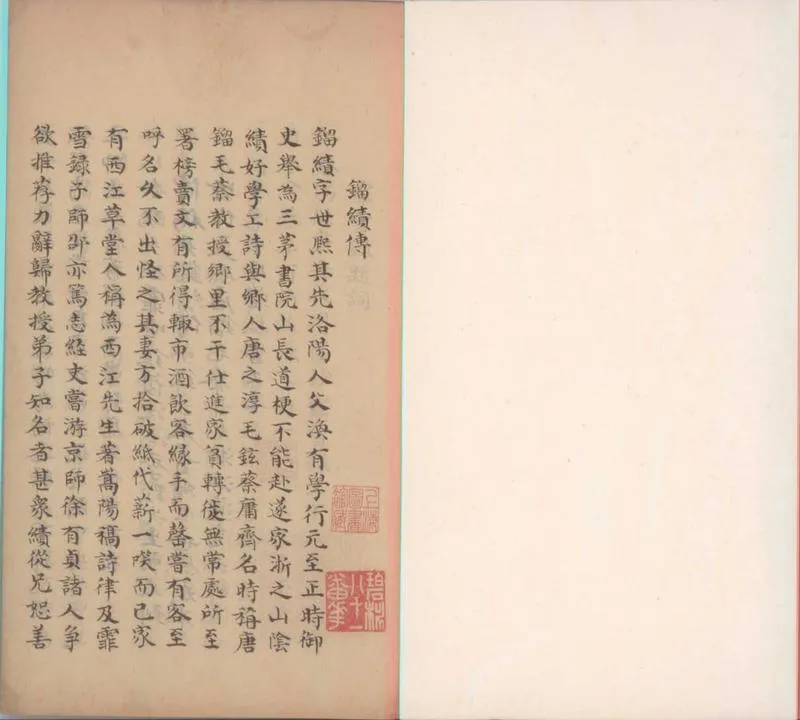 鎦績傳
鎦績字世熙其先洛陽人父渙有學行元至正時御
史舉為三茅書院山長道梗不能赴遂家浙之山陰
績好學工詩與鄉人唐之淳毛鉉蔡庸齊名時稱唐
鎦毛蔡教授鄉里不干仕進家貧轉徙無常處所至
署榜賣文有所得輒市酒飲客緣手而罄嘗有客至
呼名久不出怪之其妻方拾破紙代薪一咲而已家
有西江草堂人稱為西江先生著嵩陽稿詩律及霏
雪録子師邵亦篤志經史嘗游京師徐有貞諸人爭
欲推荐力辭歸教授弟子知名者甚衆績從兄恕善